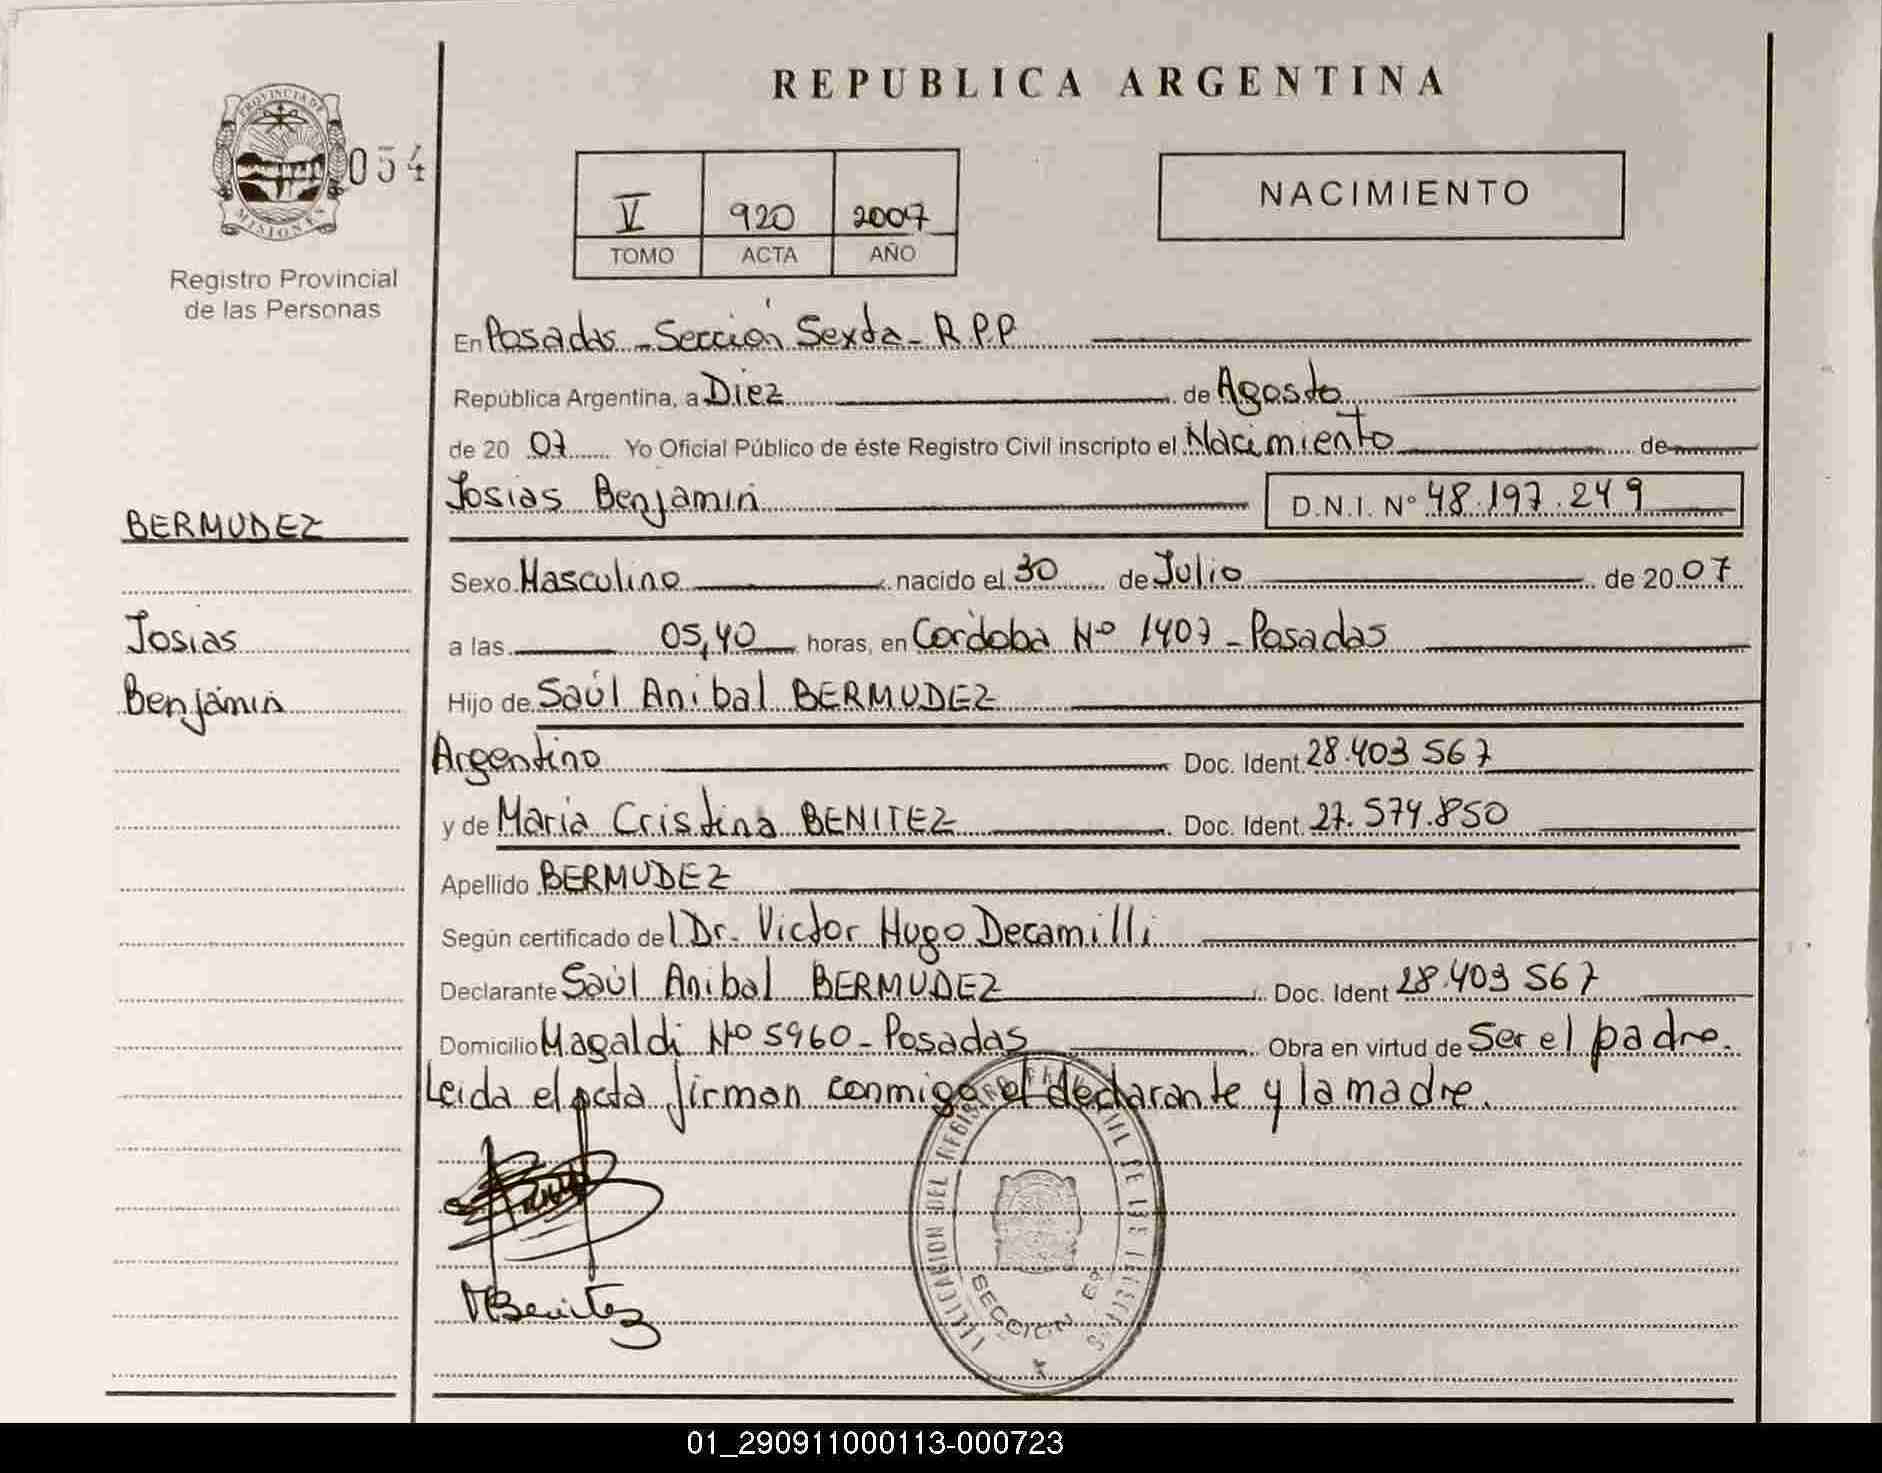 REPUBLICA ARGENTINA
PROVINCIA DE
MISIONES
054
Registro Provincial
de las Personas
V 920 2007
TOMO ACTA AÑO
NACIMIENTO
En Posadas - Sección Sexta - R.P.P.
República Argentina, a Diez de Agosto
de 20 07 Yo Oficial Público de éste Registro Civil inscripto el Nacimiento de
Josias Benjamin D.N.I. Nº 48.197.249
BERMUDEZ
Josias
Benjámin
Sexo Masculino nacido el 30 de Julio de 20 07
a las 05,40 horas, en Córdoba Nº 1407 - Posadas
Hijo de Saúl Anibal BERMUDEZ
Argentino Doc. Ident. 28.403 567
y de Maria Cristina BENITEZ Doc. Ident. 27.574.850
Apellido BERMUDEZ
Según certificado del Dr. Victor Hugo Decamilli
Declarante Saúl Anibal BERMUDEZ Doc. Ident 28.403 567
Domicilio Magaldi Nº 5960 - Posadas Obra en virtud de Ser el padre.
Leida el acta firman conmigo el declarante y la madre.
MBenitez
DEL REGISTRO
SECCION
01_290911000113-000723